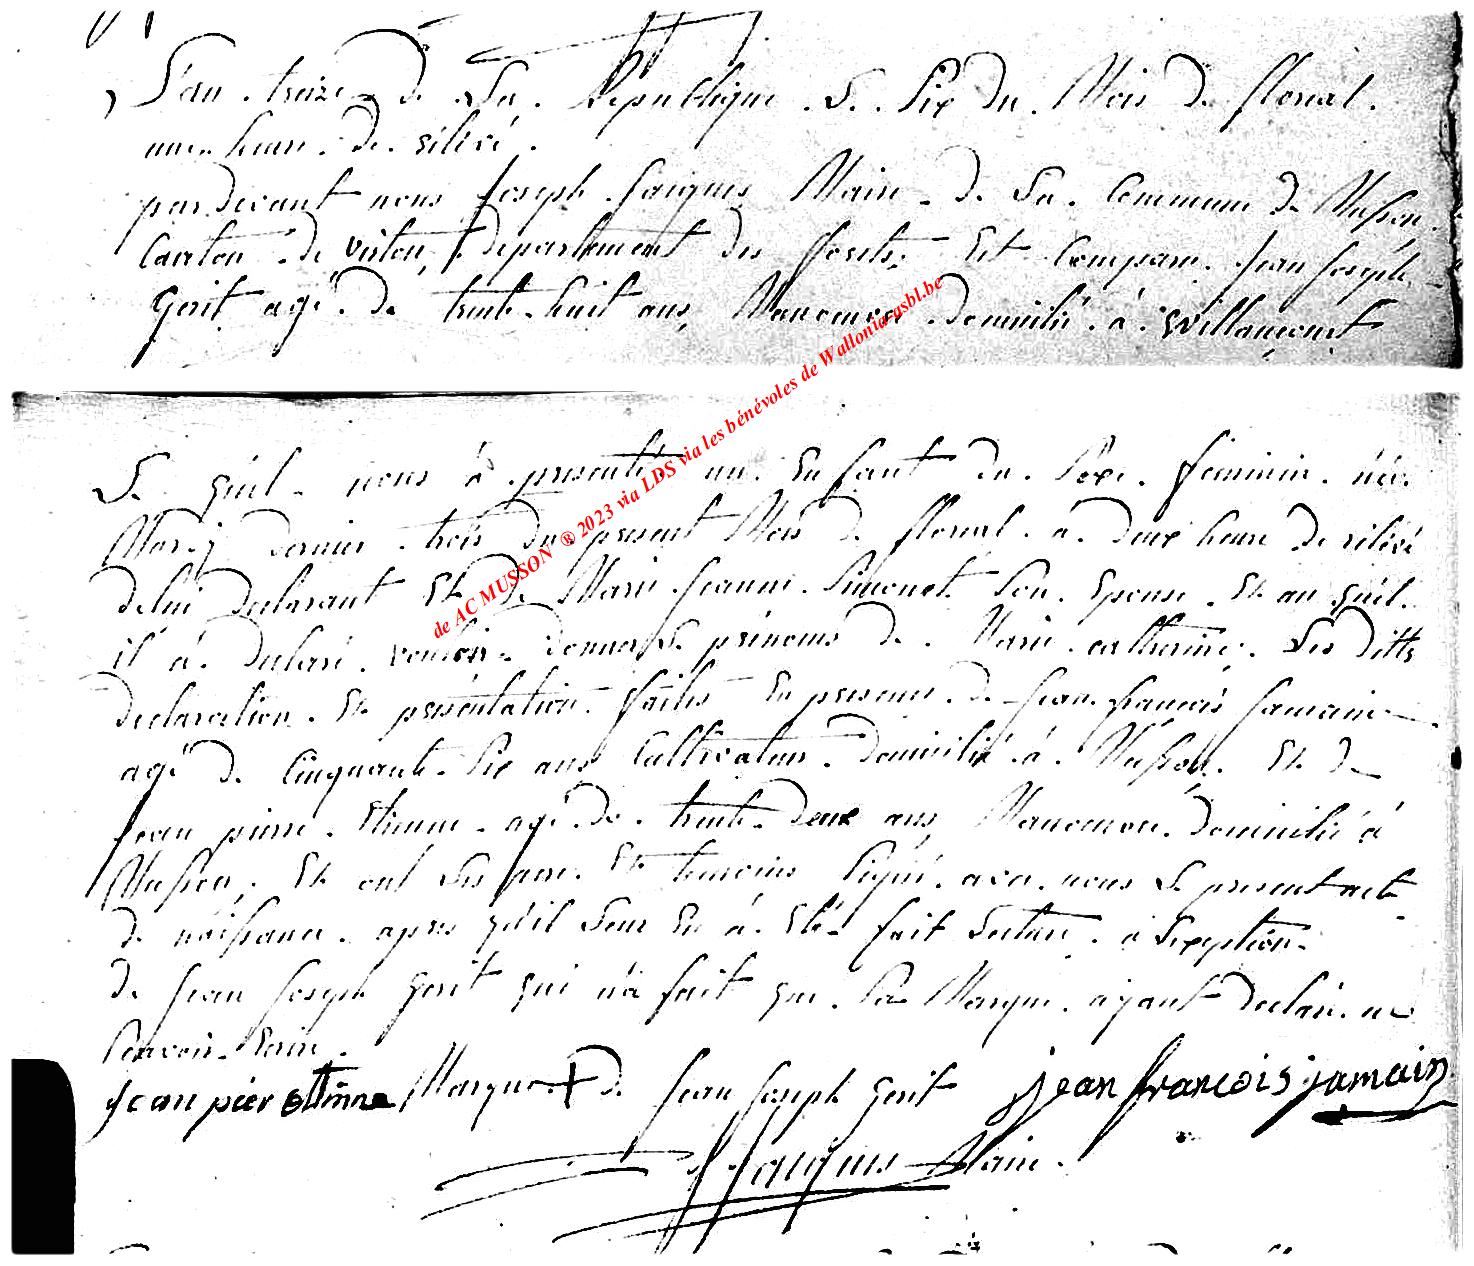 L'an treize de La Republique Le Six du Mois de floreal
une heure de rélévé
pardevant nous Joseph Jacques Maire de La Commune de Musson
Canton de virton, departement des forets, Est Comparu Jean Joseph
Gorit agé de trente huit ans, Manoeuvre domicilié à Willancourt
Le quel nous à presenté un Enfant du Sexe feminin née
Mardy dernier trois du present Mois de floreal a deux heure de rélévé
de lui declarant Et de Marie Jeanne Simonet Son Epouse Et au quel
il à declaré vouloir donner Le prenoms de Marie catherine, Les dittes
declaration Et présentation faites En presence de Jean francois Jamain
agé de Cinquante Six ans Cultivateur domicilié à Musson Et de
Jean pierre Etienne agé de trente deux ans, Manoeuvre domicilié à
Musson, Et ont Les pere Et temoins Signé avec nous Le present acte
de naissance apres qu'il Leur En à Eté fait Lecture a L'exeption
de Jean Joseph Gorit qui n'a fait que Sa Marque ayant declaré ne
Scavoir Ecrire
Jean pier etinne Marque + de Jean Joseph Gorit jean francois jamain
J Jacques Maire
de AC MUSSON ® 2023 via LDS via les bénévoles de Wallonia-asbl.be